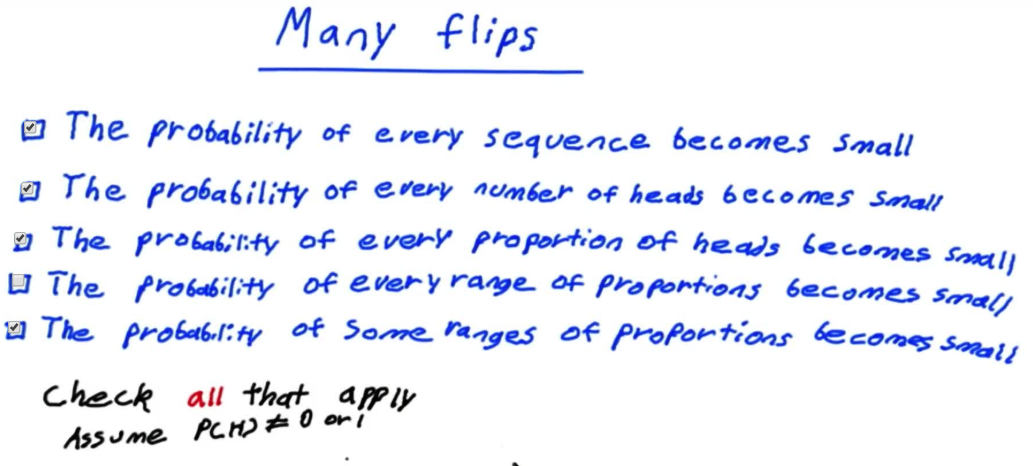 Many flips
The probability of every sequence becomes small
The probability of every number of heads becomes small
The probability of every proportion of heads becomes small
The probability of every range of proportions becomes small
The probability of some ranges of proportions becomes small
Check all that apply
Assume P(H) ≠ 0 or 1